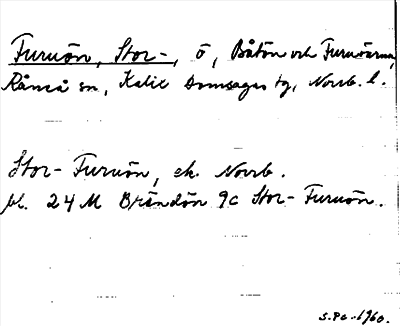 Furuön, Stor-, ö, Båtön och Furuöarna,
Råneå sn, Kalix domsagas tg, Norrb. l.
Stor-Furuön, ek. Norrb.
bl. 24 M Brändön 9c Stor-Furuön.
S.Pc. 1960.